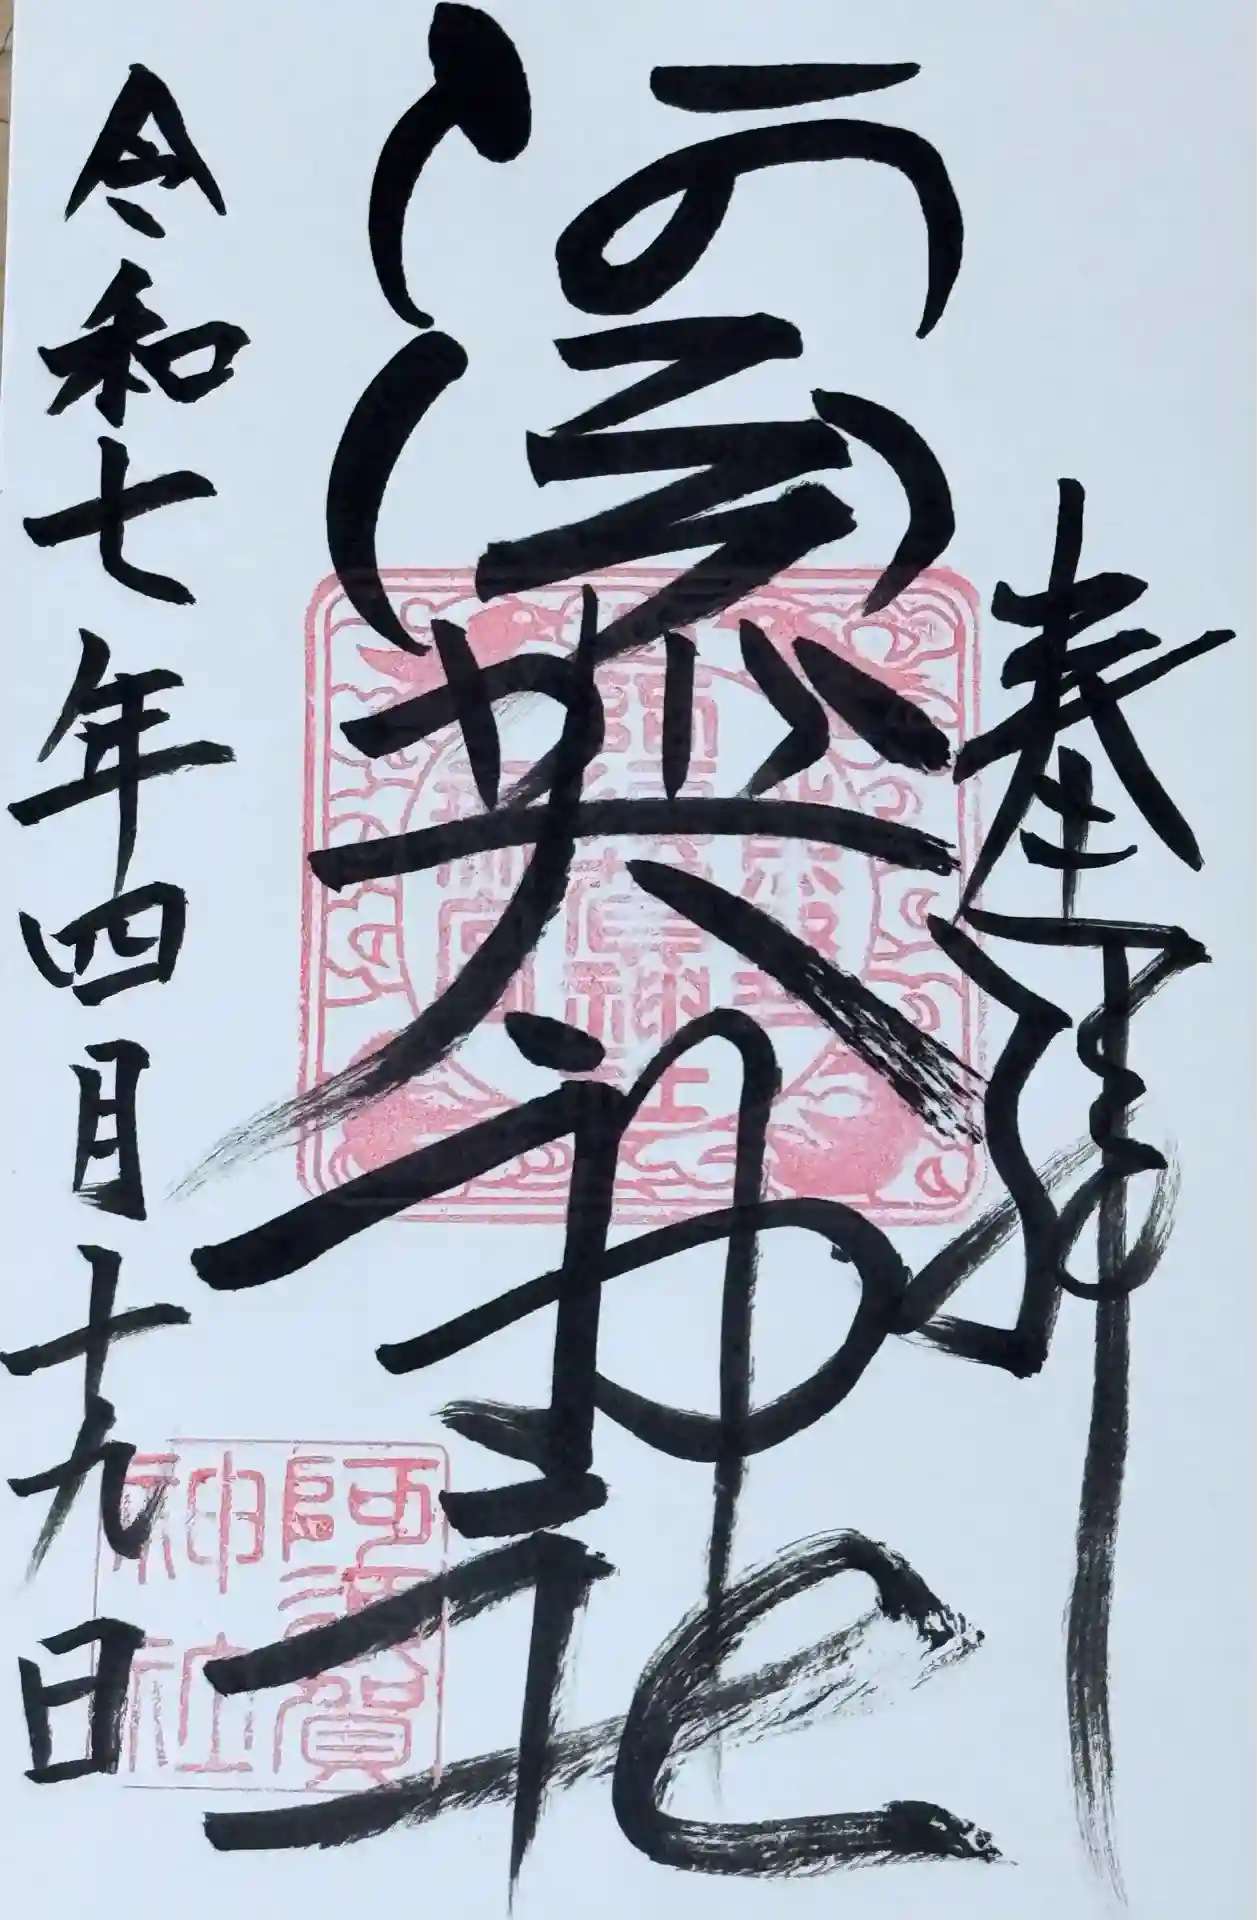 奉拝
阿須賀神社
令和七年四月十九日
阿須賀
神社